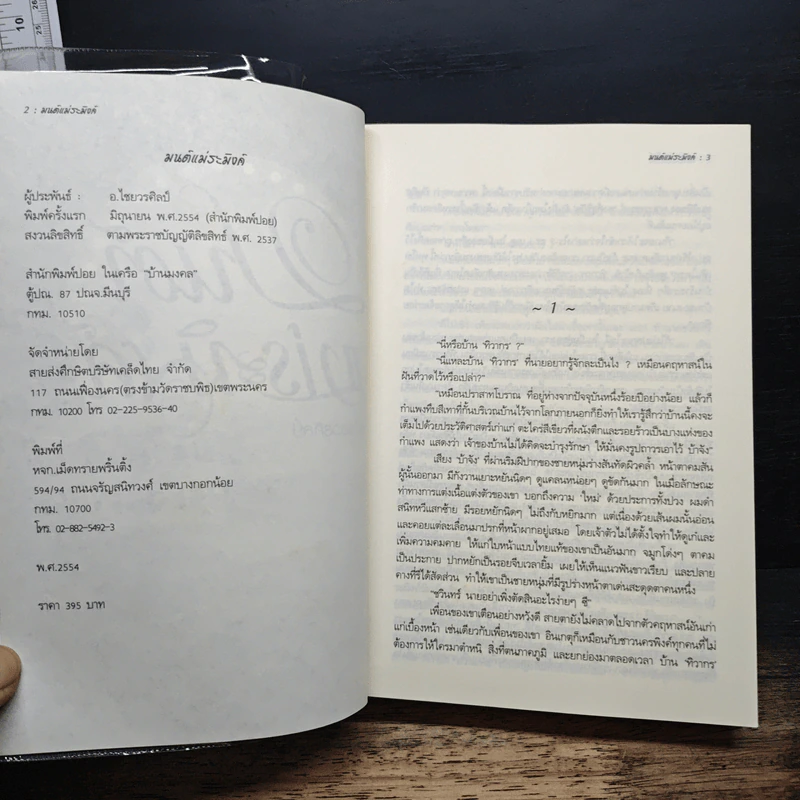 10
25
26
2 : มนต์แม่ระมิงค์
มนต์แม่ระมิงค์
ผู้ประพันธ์ : อ.ไชยวรศิลป์
พิมพ์ครั้งแรก มิถุนายน พ.ศ.2554 (สำนักพิมพ์ปอย)
สงวนลิขสิทธิ์ ตามพระราชบัญญัติลิขสิทธ์ พ.ศ. 2537
สำนักพิมพ์ปอย ในเครือ "บ้านมงคล"
ตู้ปณ. 87 ปณจ.มีนบุรี
กทม. 10510
จัดจำหน่ายโดย
สายส่งศึกษิตบริษัทเคล็ดไทย จำกัด
117 ถนนเฟื่องนคร(ตรงข้ามวัดราชบพิธ)เขตพระนคร
กทม. 10200 โทร 02-225-9536-40
พิมพ์ที่
หจก.เม็ดทรายพริ้นติ้ง
594/94 ถนนจรัญสนิทวงศ์ เขตบางกอกน้อย
กทม. 10700
โทร. 02-882-5492-3
พ.ศ.2554
ราคา 395 บาท
มนต์แม่ระมิงค์ : 3
~ 1 ~
"นี่หรือบ้าน 'ทิวากร' ?"
"นี่แหละบ้าน 'ทิวากร' ที่นายอยากรู้จักละเป็นไง ? เหมือนคฤหาสน์ใน
ฝันที่วาดไว้หรือเปล่า?"
"เหมือนปราสาทโบราณ ที่อยู่ห่างจากปัจจุบันหนึ่งร้อยปีอย่างน้อย แล้วก็
กำแพงทึบสีเทาที่กั้นบริเวณบ้านไว้จากโลกภายนอกก็ยิ่งทำให้เรารู้สึกว่าบ้านนี้คงจะ
เต็มไปด้วยประวัติศาสตร์เก่าแก่ ตะไคร่สีเขียวที่ผนังตึกและรอยร้าวเป็นบางแห่งของ
กำแพง แสดงว่า เจ้าของบ้านไม่ได้คิดจะบำรุงรักษา ให้มั่นคงรูปถาวรเอาไว้ บ้าจัง"
เสียง 'บ้าจัง' ที่ผ่านริมฝีปากของชายหนุ่มร่างสันทัดผิวคล้ำ หน้าตาคมสัน
ผู้นั้นออกมา มีกังวานเยาะหยันนิดๆ ดูแคลนหน่อยๆ ดูขัดกันมาก ในเมื่อลักษณะ
ท่าทางการแต่งเนื้อแต่งตัวของเขา บอกถึงความ 'ใหม่' ด้วยประการทั้งปวง ผมดำ
สนิทหวีแสกซ้าย มีรอยหยักนิดๆ ไม่ถึงกับหยิกมาก แต่เนื่องด้วยเส้นผมนั้นอ่อน
และคอยแต่ละเลื่อนมาปรกที่หน้าผากอยู่เสมอ โดยเจ้าตัวไม่ได้ตั้งใจทำให้ดูเก๋และ
เพิ่มความคมคาย ให้แก่ใบหน้าแบบไทยแท้ของเขาเป็นอันมาก จมูกโด่งๆ ตาคม
เป็นประกาย ปากหยักเป็นรอยจีบเวลายิ้ม เผยให้เห็นแนวฟันขาวเรียบ และปลาย
คางที่รีได้สัดส่วน ทำให้เขาเป็นชายหนุ่มที่มีรูปร่างหน้าตาเด่นสะดุดตาคนหนึ่ง
"ชวินทร์ นายอย่าเพิ่งตัดสินอะไรง่ายๆ ซี"
เพื่อนของเขาเตือนอย่างหวังดี สายตายังไม่คลาดไปจากตัวคฤหาสน์อันเก่า
แก่เบื้องหน้า เช่นเดียวกับเพื่อนของเขา อินเกตุก็เหมือนกับชาวนครพิงค์ทุกคนที่ไม่
ต้องการให้ใครมาตำหนิ สิ่งที่ตนภาคภูมิ และยกย่องมาตลอดเวลา บ้าน 'ทิวากร'